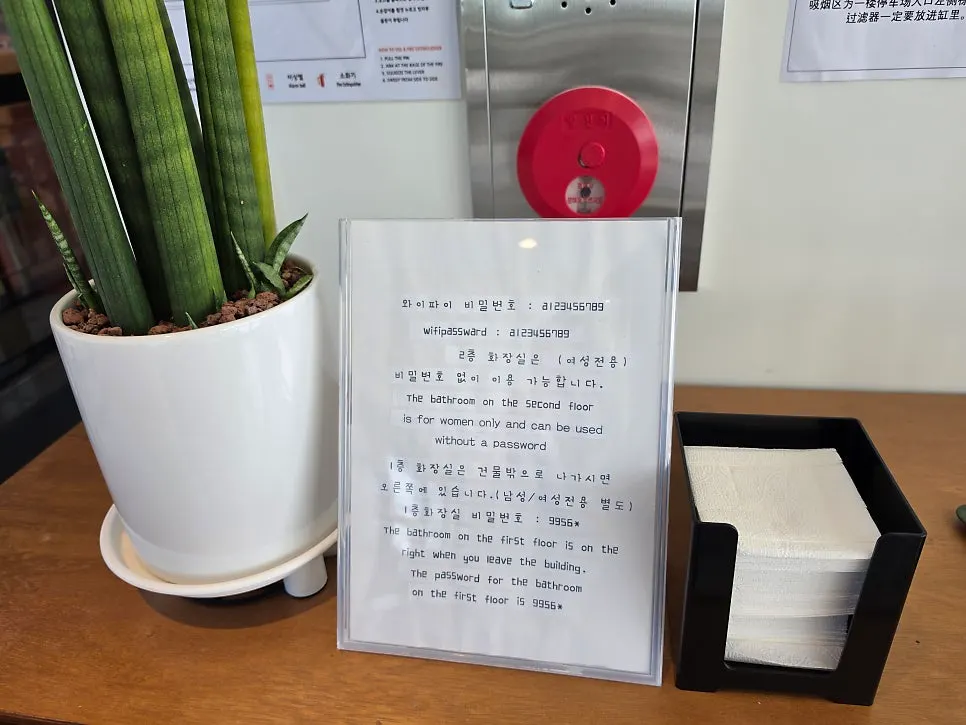 HOW TO USE A FIRE EXTINGUISHER
1. PULL THE PIN
2. AIM AT THE BASE OF THE FIRE
3. SQUEEZE THE LEVER
4. SWEEP FROM SIDE TO SIDE
비상벨
소화기
Fire Extinguisher
过滤器一定要放进缸里。
와이파이 비밀번호 : a123456789
wifipassward : a123456789
2층 화장실은 (여성전용)
비밀번호 없이 이용 가능합니다.
The bathroom on the second floor
is for women only and can be used
without a password
1층 화장실은 건물밖으로 나가시면
오른쪽에 있습니다.(남성/여성전용 별도)
1층화장실 비밀번호 : 9956*
The bathroom on the first floor is on the
right when you leave the building.
The password for the bathroom
on the first floor is 9956*